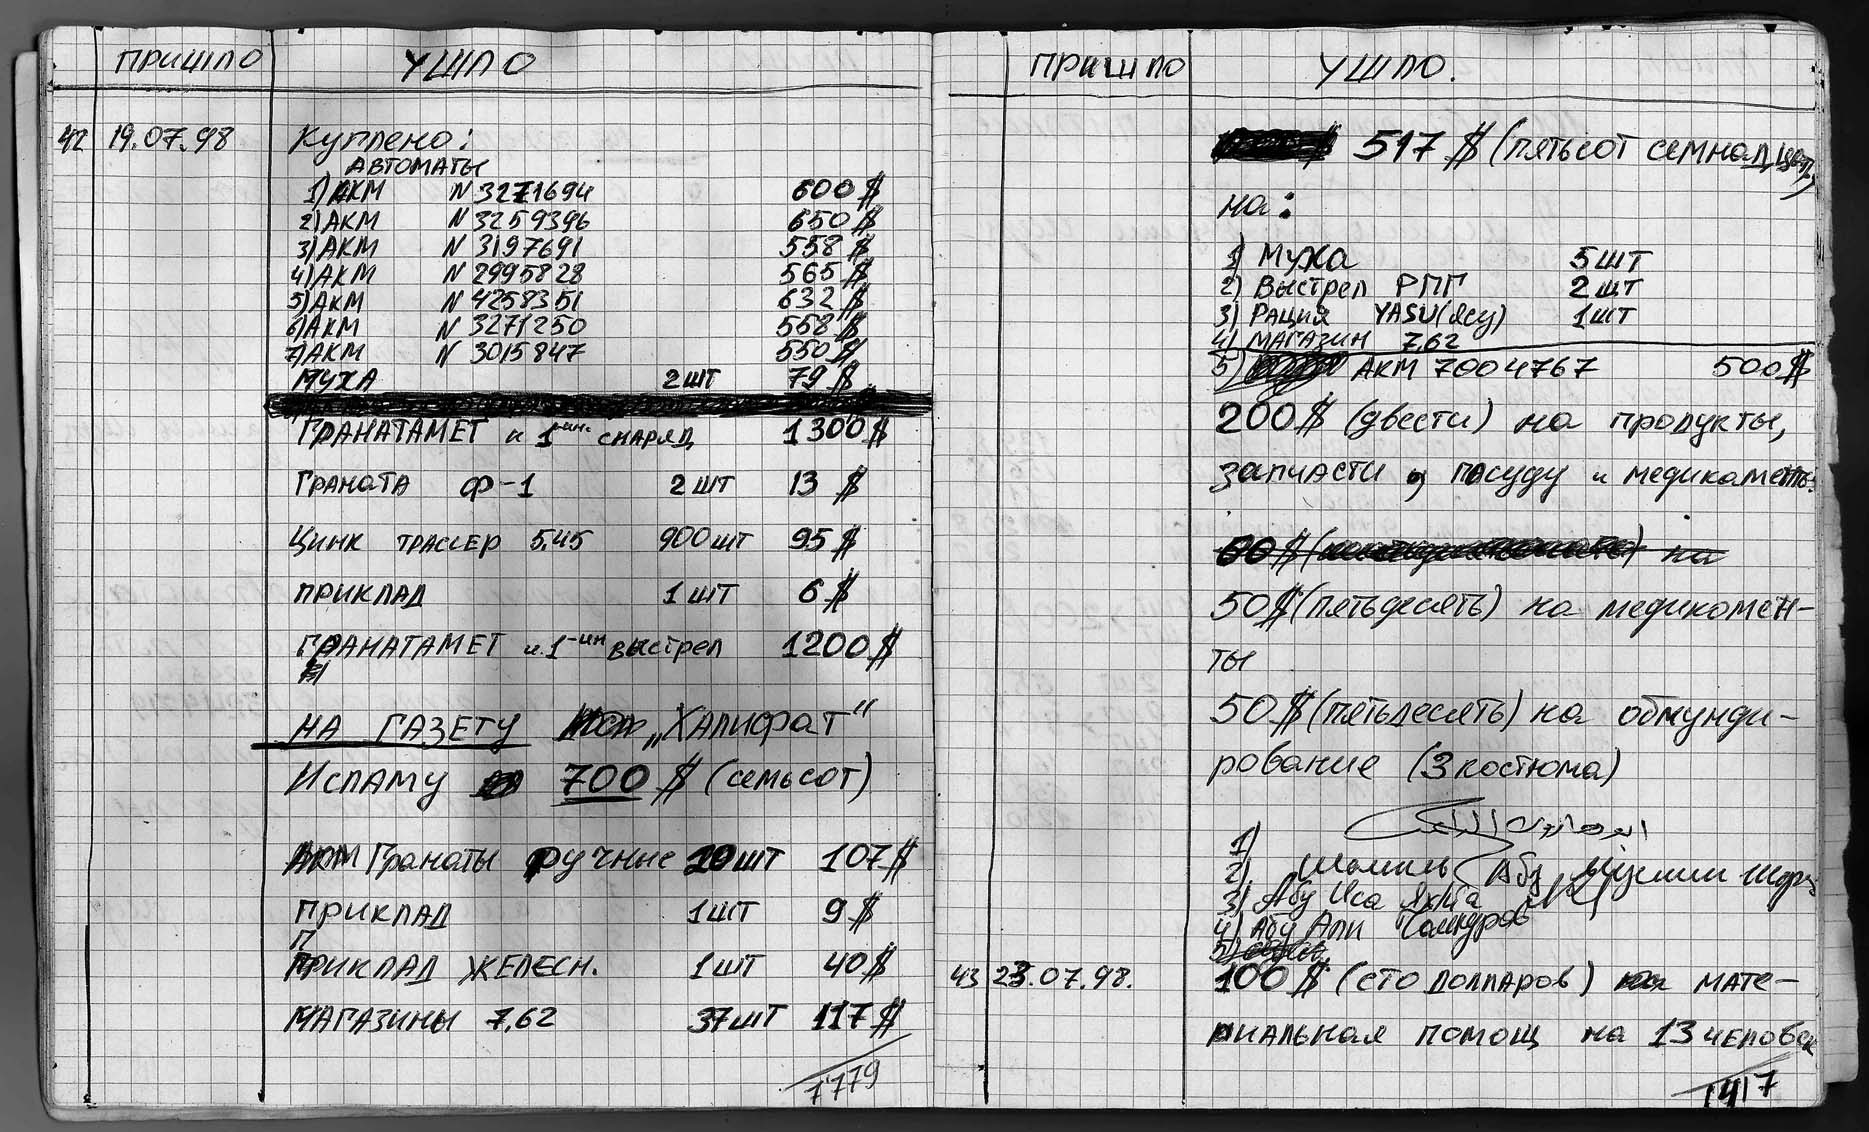 ПРИШЛО УШЛО
42 19.07.98 Куплено:
АВТОМАТЫ
1) АКМ N 3271694 600 $
2) АКМ N 3259396 650 $
3) АКМ N 3197691 558 $
4) АКМ N 2995828 565 $
5) АКМ N 4258351 632 $
6) АКМ N 3271250 558 $
7) АКМ N 3015847 550 $
МУХА 2 шт 79 $
ГРАНАТАМЕТ и 1-ин. снаряд 1300 $
Граната Ф-1 2 шт 13 $
Цинк трассер 5.45 900 шт 95 $
приклад 1 шт 6 $
ГРАНАТАМЕТ и 1-ин выстрел 1200 $
НА ГАЗЕТУ „Халифат"
Исламу 700 $ (семьсот)
Гранаты ручные 20 шт 107 $
приклад 1 шт 9 $
П
ПРИКЛАД ЖЕЛЕСН. 1 шт 40 $
МАГАЗИНЫ 7,62 37 шт 117 $
1779
ПРИШЛО УШЛО.
517 $ (пятьсот семнадцать)
на:
1) Муха 5 шт
2) Выстрел РПГ 2 шт
3) Рация YASU (ясу) 1 шт
4) МАГАЗИН 7,62
5) АКМ 7004767 500 $
200 $ (двести) на продукты,
запчасти, посуду и медикаменты.
00 $ на
50 $ (пятьдесять) на медикомен-
ты
50 $ (пятьдесять) на обмунди-
рование (3 костюма)
1)
2) Абу
3) Абу Иса
4) Абу Али
5)
43 23.07.98. 100 $ (сто долларов) мате-
риальная помощ на 13 человек
1417